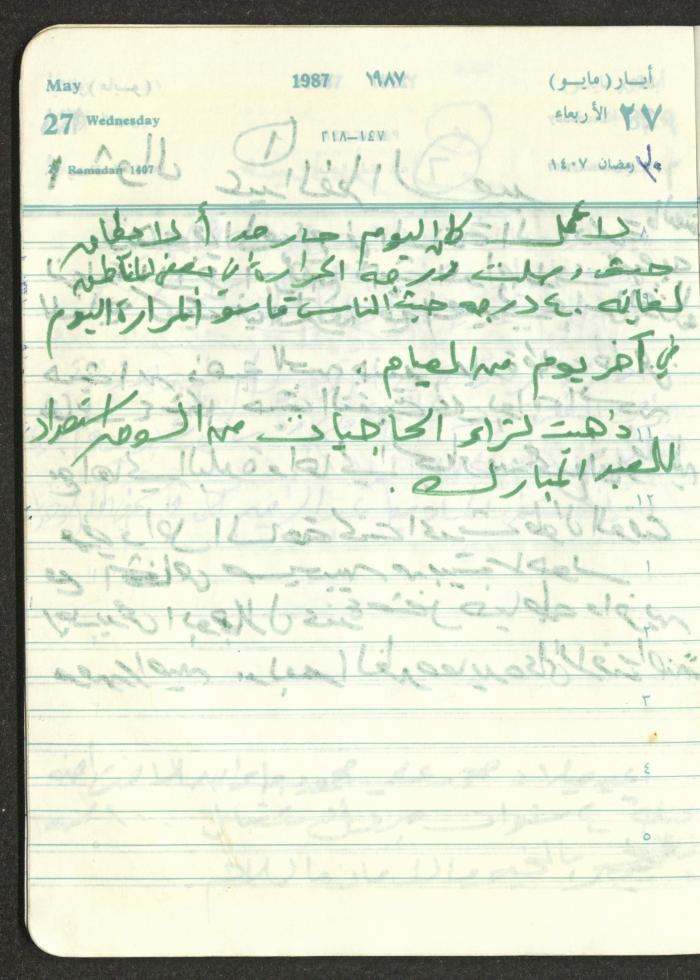 May 1987 ١٩٨٧ أيار (مايو)
27 Wednesday ١٤٧–٢١٨ الأربعاء ٢٧
Ramadan 1407 ٣٠ رمضان ١٤٠٧
٨ لا عمل كان اليوم حار جداً لا يطاق
حيث وصلت درجة الحرارة في بعض المناطق
لغاية ٤٠ درجه حيث الناس قاسو الحرارة اليوم
في آخر يوم من الصيام .
١١ ذهبت لشراء الحاجيات من السوق استعداد
للعيد المبارك .
١٢
١
٢
٣
٤
٥